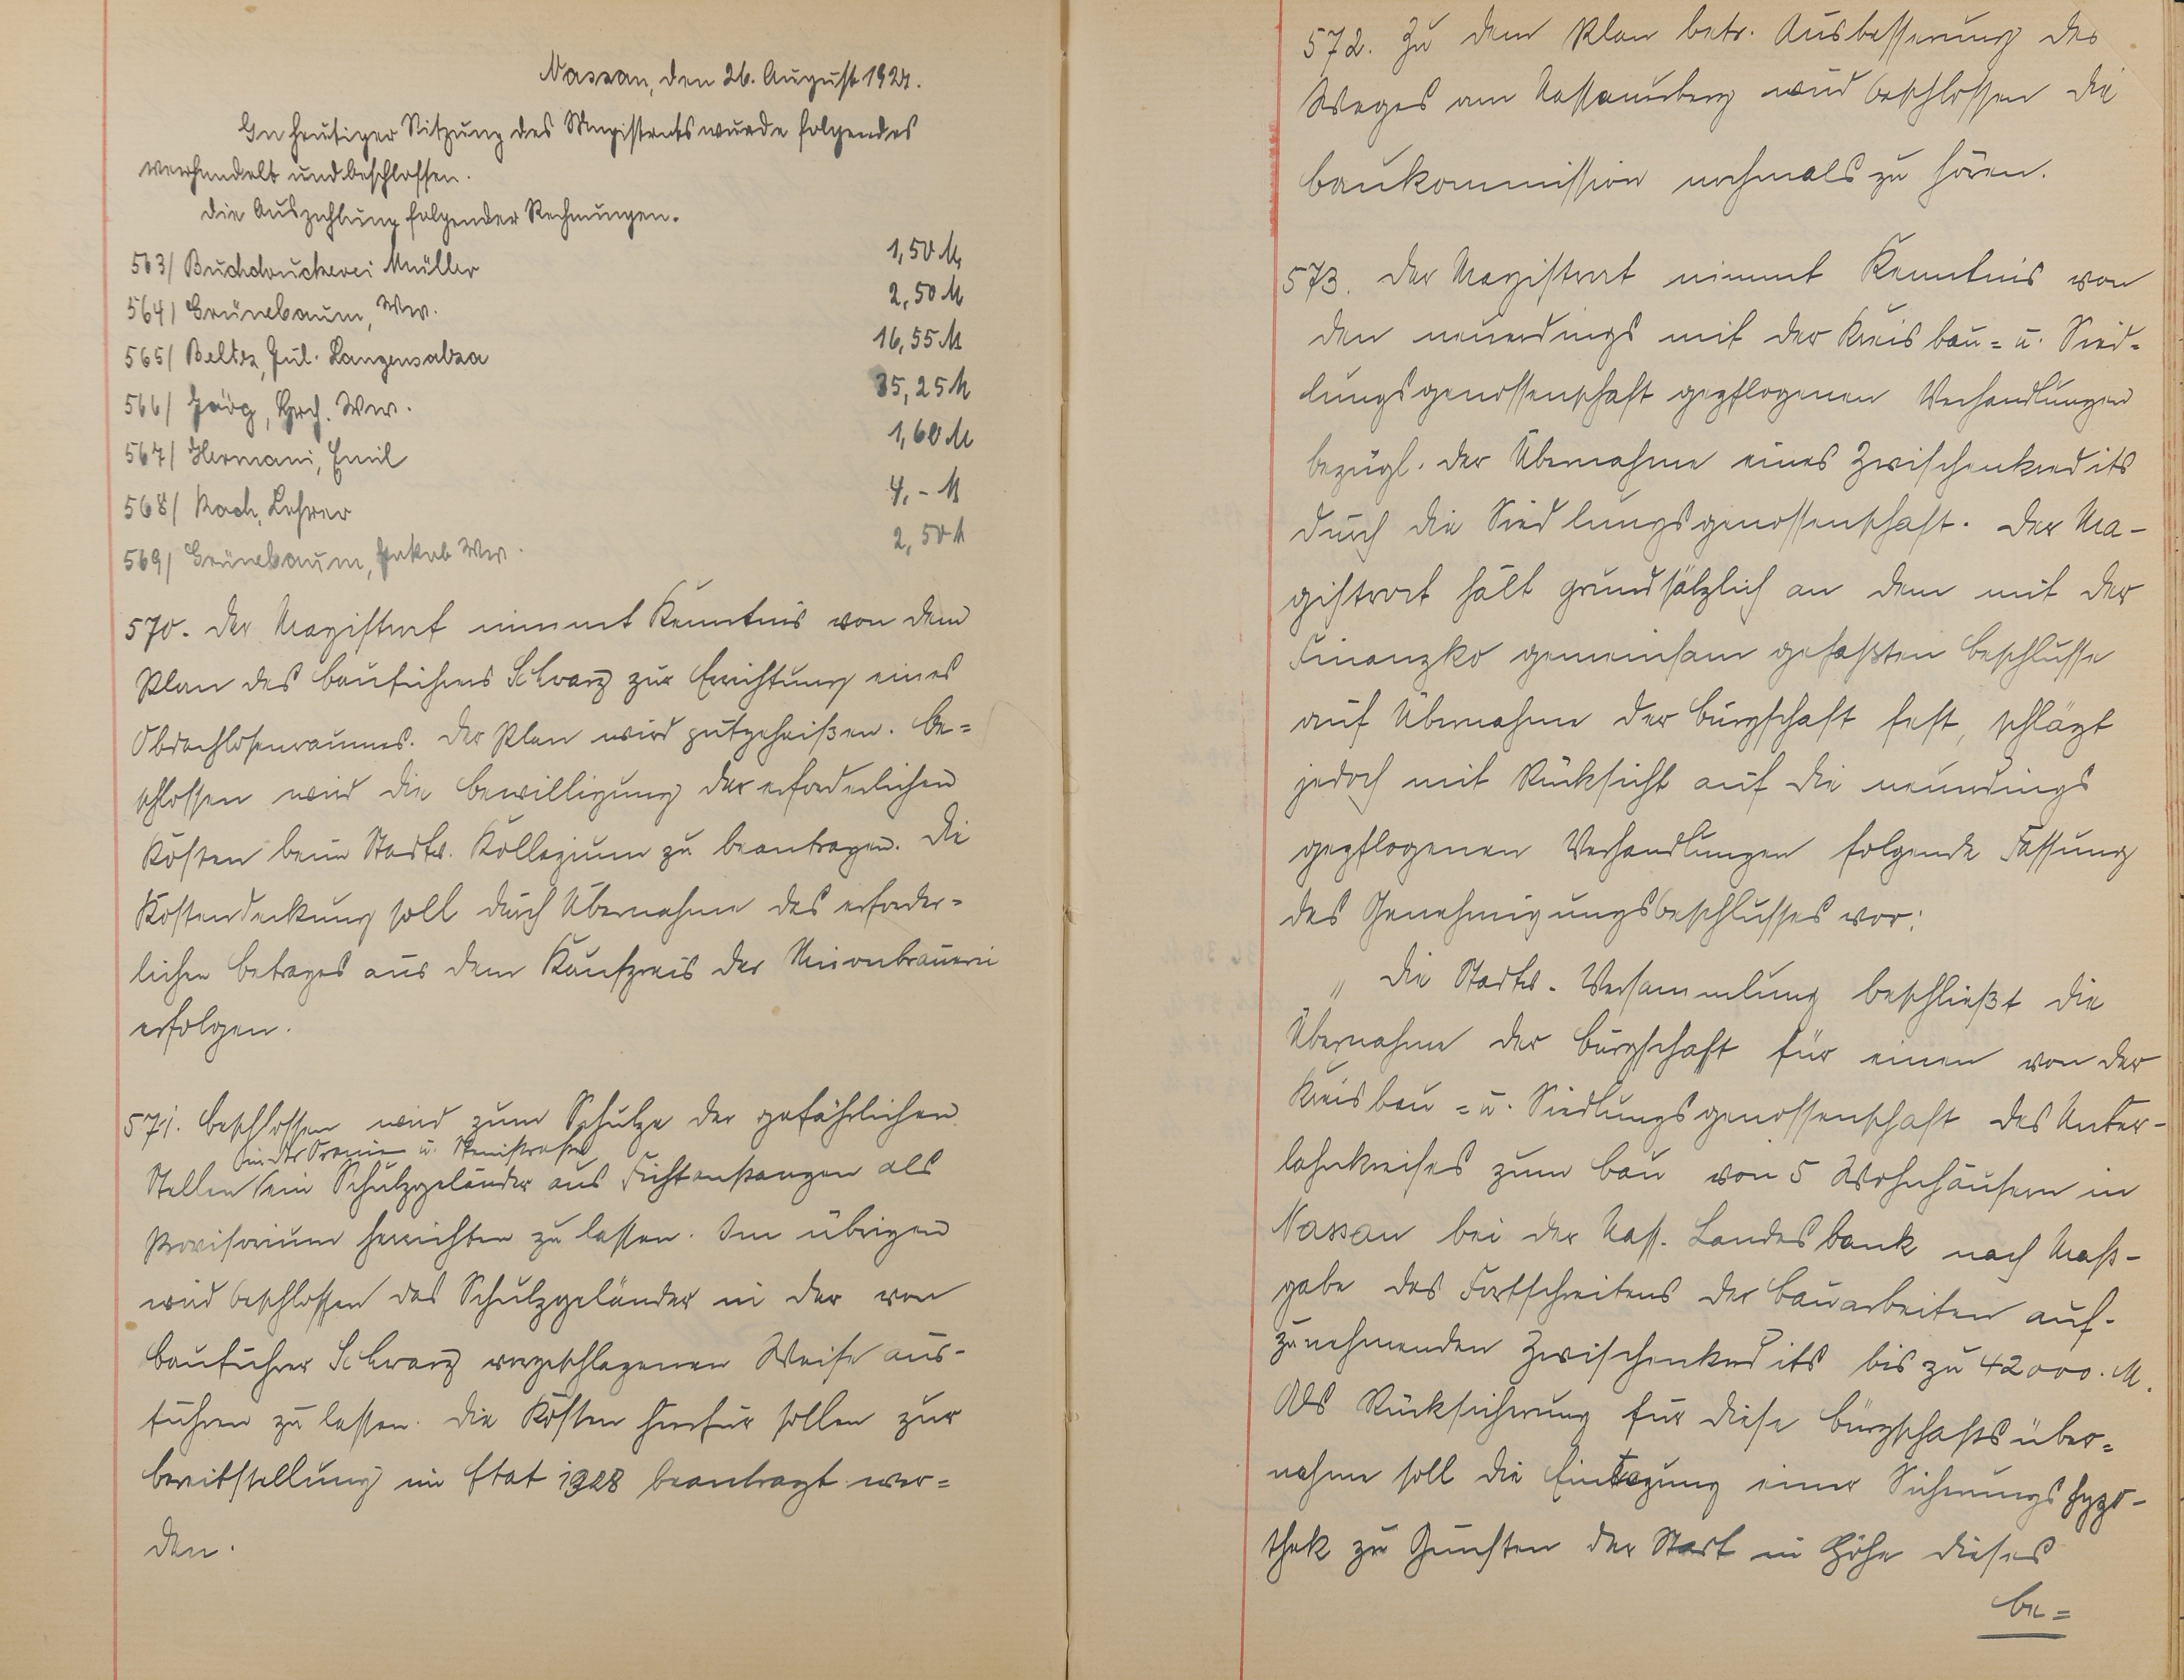 Nassau, den 26. August 1927.
In heutiger Sitzung des Magistrats wurde folgendes
verhandelt und beschlossen.
Die Auszahlung folgender Rechnungen.
563/ Buchdruckerei Müller 1,50 M
564/ Grünebaum, Ww. 2,50 M
565/ Beltz, Jul. Langensalza 16,55 M
566/ Jörg, Hrch. Ww. 35,25 M
567/ Hermani, Emil 1,60 M
568/ Koch, Lehrer 4,- M
569/ Grünebaum, Jakob Ww. 2,50 M
570. Der Magistrat nimmt Kenntnis von dem
Plan des Bauführers Schwarz zur Errichtung eines
Obdachlosenraumes. Der Plan wird gutgeheißen. Be=
schlossen wird die Bewilligung der erforderlichen
Kosten beim Stadtv. Kollegium zu beantragen. Die
Kostendeckung soll durch Übernahme des erforder=
lichen Betrages aus dem Kaufpreis der Unionbrauerei
erfolgen.
571. Beschlossen wird zum Schutze der gefährlichen
in der u.
Stellen ein Schutzgeländer aus Fichtenstangen als
Provisorium herrichten zu lassen. Im übrigen
wird beschlossen das Schutzgeländer in der von
Bauführer Schwarz vorgeschlagenen Weise aus-
führen zu lassen. Die Kosten hierfür sollen zur
Bereitstellung im Etat 1928 beantragt wer=
den.
572. Zu dem Plan betr. Ausbesserung des
Weges am Nassauerberg wird beschlossen die
Baukommission nochmals zu hören.
573. Der Magistrat nimmt Kenntnis von
den neuerdings mit der Kreisbau= u. Sied=
lungsgenossenschaft gepflogenen Verhandlungen
bezügl. der Übernahme eines Zwischenkredits
durch die Siedlungsgenossenschaft. Der Ma-
gistrat hält grundsätzlich an dem mit der
Finanzko gemeinsam gefaßten Beschlusse
auf Übernahme der Bürgschaft fest, schlägt
jedoch mit Rücksicht auf die neuerdings
gepflogenen Verhandlungen folgende Fassung
des Genehmigungsbeschlusses vor:
„ Die Stadtv. Versammlung beschließt die
Übernahme der Bürgschaft für einen von der
Kreisbau= u. Siedlungsgenossenschaft des Unter-
lahnkreises zum Bau von 5 Wohnhäusern in
Nassau bei der Nass. Landesbank nach Maß-
gabe des Fortschreitens der Bauarbeiten auf-
zunehmenden Zwischenkredits bis zu 42000. M.
Als Rücksicherung für diese Bürgschaftsüber=
nahme soll die Eintragung einer Sicherungshypo-
thek zu Gunsten der Stadt in Höhe dieses
Be=